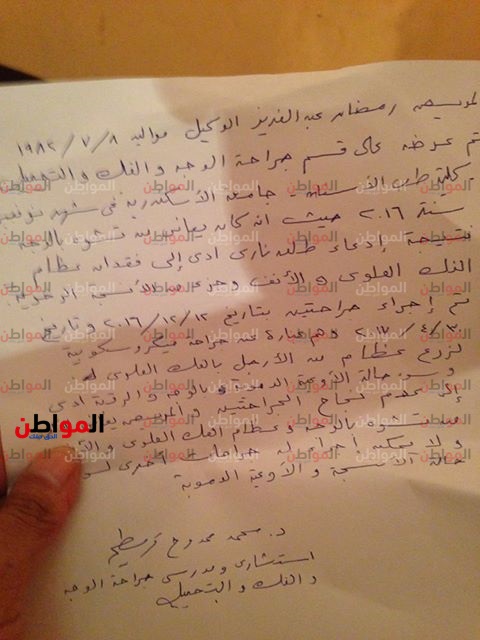 المريض رمضان عبد العزيز الوكيل مواليد ٨/٧/١٩٨٢
تم عرضه على قسم جراحة الوجه و الفك و التجميل
كلية طب الأسنان - جامعة الأسكندرية فى شهر نوفمبر
سنة ٢٠١٦ حيث انه كان يعانى من تشوه بالوجه
نتيجة إدعاء طلق نارى ادى إلى فقدان عظام
الفك العلوى و الأنف و جزء من الأنسجة الرخوية
تم إجراء جراحتين بتاريخ ١٢/١٢/٢٠١٦ و تاريخ
٣٠/٤/٢٠١٧ وهم عبارة عن جراحة ميكروسكوبية
لزرع عظام من الأرجل بالفك العلوى
و سوء حالة الأوعية الدموية بالوجه و الرقبة ادى
إلى عدم نجاح الجراحتين و المريض
من تشوه بالوجه و عظام الفك العلوى و
و لا يمكن أجراء له جراحات أخرى لسوء
حالة الأنسجة و الأوعية الدموية
د. محمد ممدوح
استشارى و مدرس جراحة الوجه
و الفك و التجميل
المواطن